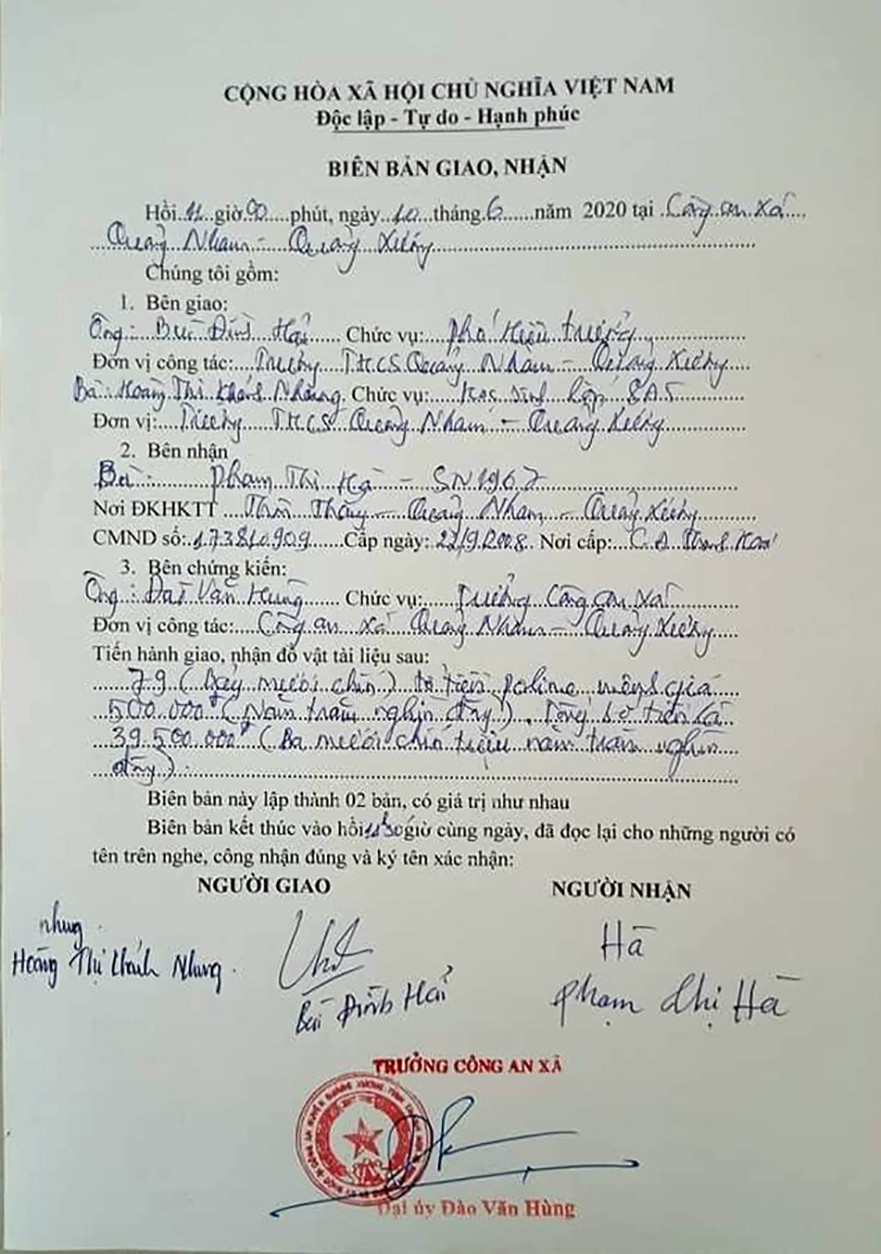 CỘNG HÒA XÃ HỘI CHỦ NGHĨA VIỆT NAM
Độc lập - Tự do - Hạnh phúc
BIÊN BẢN GIAO, NHẬN
Hồi 11 giờ 00 phút, ngày 10 tháng 6 năm 2020 tại Công an xã
Quảng Nham - Quảng Xương
Chúng tôi gồm:
1. Bên giao:
Ông: Bùi Đình Hải Chức vụ: Phó Hiệu trưởng
Đơn vị công tác: Trường T.H.C.S Quảng Nham - Quảng Xương
Bà: Hoàng Thị Khánh Nhung Chức vụ: Học sinh lớp 8A5
Đơn vị: Trường T.H.C.S Quảng Nham - Quảng Xương
2. Bên nhận
Bà: Phạm Thị Hà - SN 1967
Nơi ĐKHKTT Thôn Thắng - Quảng Nham - Quảng Xương
CMND số: 173810909 Cấp ngày: 22/9/2008 Nơi cấp: C.A Thanh Hoá
3. Bên chứng kiến:
Ông: Đào Văn Hùng Chức vụ: Trưởng Công an xã
Đơn vị công tác: Công an xã Quảng Nham - Quảng Xương
Tiến hành giao, nhận đồ vật tài liệu sau:
79 (Bảy mươi chín) tờ tiền polime mệnh giá
500.000đ (Năm trăm nghìn đồng). Tổng số tiền là
39.500.000đ (Ba mươi chín triệu năm trăm nghìn
đồng)
Biên bản này lập thành 02 bản, có giá trị như nhau
Biên bản kết thúc vào hồi 11h30 giờ cùng ngày, đã đọc lại cho những người có
tên trên nghe, công nhận đúng và ký tên xác nhận:
NGƯỜI GIAO NGƯỜI NHẬN
nhung Hà
Hoàng Thị Khánh Nhung. Bùi Đình Hải Phạm Thị Hà
TRƯỞNG CÔNG AN XÃ
Đại úy Đào Văn Hùng